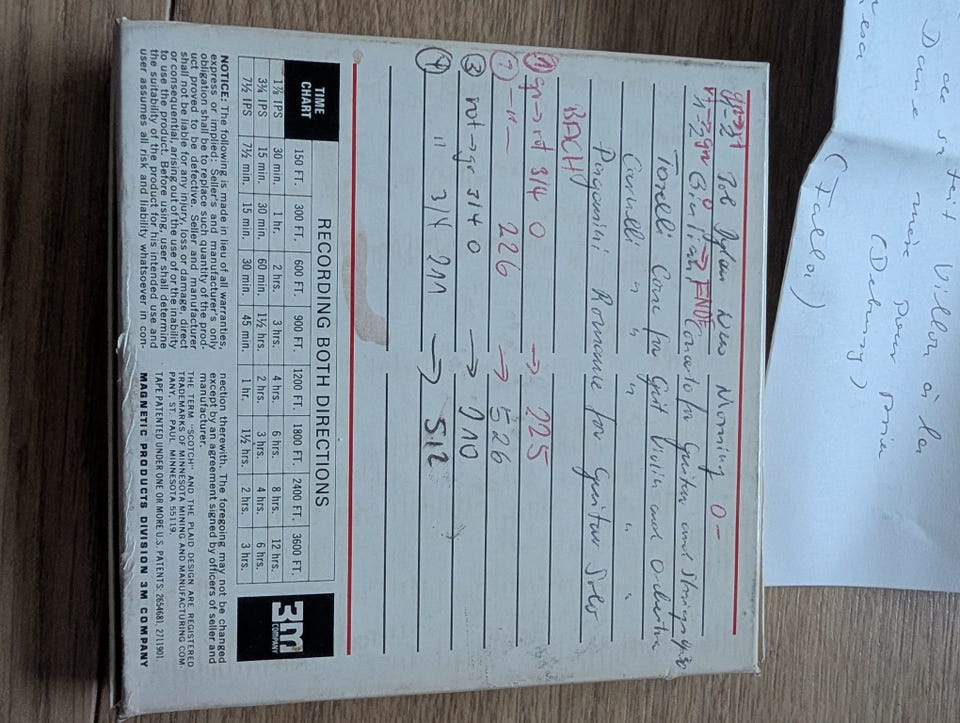 gr→rt
1-2 Bob Dylan New Morning 0-
rt→gr 1-2 Giuliani Concerto for Guitar and Strings op. 30
→ ENDE
Torelli Conc for Guit Violin and Orchestra
Carulli " " " "
Paganini: Romance for Guitar Solo
BACH
① gr→rot 3/4 0 → 225
② -"- 226 → 526
③ rot→gr 3/4 0 → 210
④ " 3/4 211 → 512
RECORDING BOTH DIRECTIONS
TIME CHART 150 FT. 300 FT. 600 FT. 900 FT. 1200 FT. 1800 FT. 2400 FT. 3600 FT.
1⅞ IPS 30 min. 1 hr. 2 hrs. 3 hrs. 4 hrs. 6 hrs. 8 hrs. 12 hrs.
3¾ IPS 15 min. 30 min. 60 min. 1½ hrs. 2 hrs. 3 hrs. 4 hrs. 6 hrs.
7½ IPS 7½ min. 15 min. 30 min. 45 min. 1 hr. 1½ hrs. 2 hrs. 3 hrs.
3M
COMPANY
NOTICE: The following is made in lieu of all warranties,
express or implied: Seller's and manufacturer's only
obligation shall be to replace such quantity of the prod-
uct proved to be defective. Seller and manufacturer
shall not be liable for any injury, loss or damage, direct
or consequential, arising out of the use of or the inability
to use the product. Before using, user shall determine
the suitability of the product for his intended use and
user assumes all risk and liability whatsoever in con-
nection therewith. The foregoing may not be changed
except by an agreement signed by officers of seller and
manufacturer.
THE TERM "SCOTCH" AND THE PLAID DESIGN ARE REGISTERED
TRADEMARKS OF MINNESOTA MINING AND MANUFACTURING COM-
PANY, ST. PAUL, MINNESOTA 55119.
TAPE PATENTED UNDER ONE OR MORE U.S. PATENTS: 2654681, 2711901.
MAGNETIC PRODUCTS DIVISION 3M COMPANY
Villon à
Dame pour
(Debussy)
(Falla)